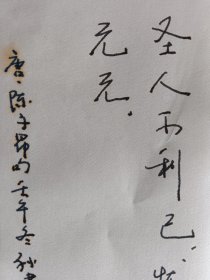 圣人不利己，
元元．
唐·陈子昂句壬午冬